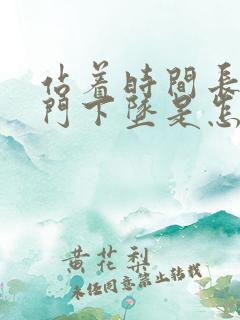 站着時間長
門下墜是怎
黄花梨
未经同意禁止转载